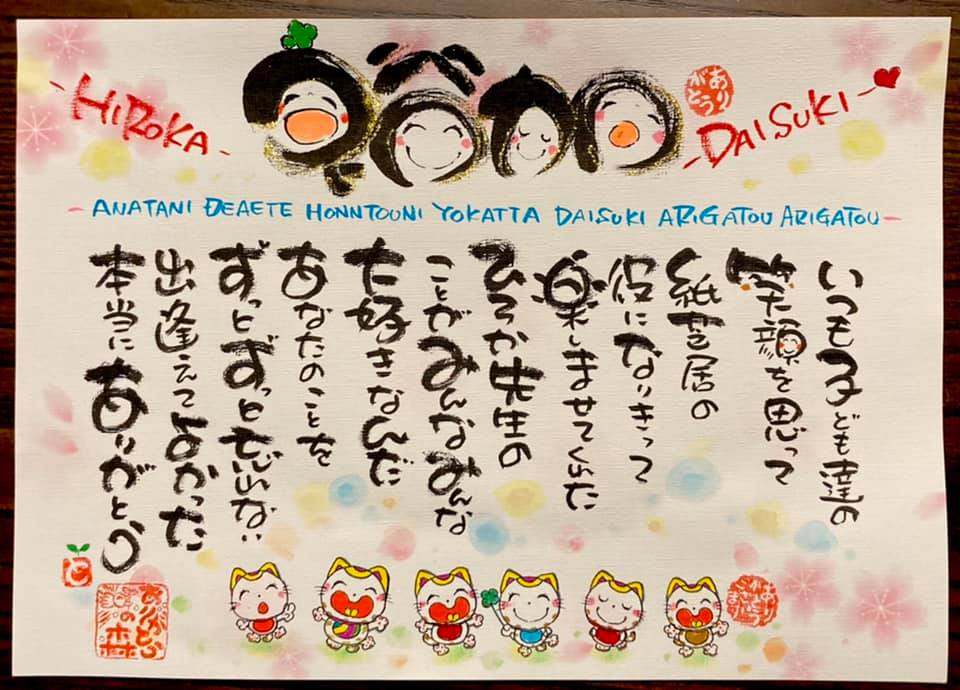 HIROKA
ありがとう
DAISUKI
ANATANI DEAETE HONNTOUNI YOKATTA DAISUKI ARIGATOU ARIGATOU
いつも子ども達の
笑顔を思って
紙芝居の
役になりきって
楽しませてくれた
ひろか先生の
ことがみんなみんな
大好きなんだ
あなたのことを
ずっとずっと忘れない
出逢えてよかった
本当にありがとう
ありがとうの森